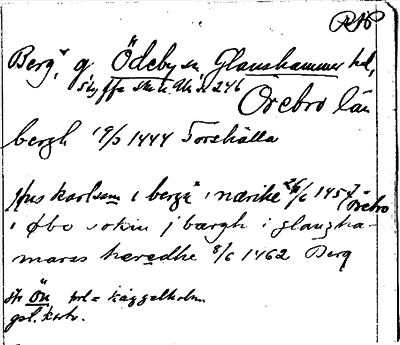 RSP
Berg, g Ödeby sn Glanshammer hd,
Styffe Sk. u. Un. s. 246
Örebro län
bergh 19/3 1444 Torshälla
Jons karlsson i berga i nærike 26/6 1457 (Örebro
i Øbo sokin j bærgh i glansha-
mars hæredhe 8/6 1462 Berg
str Ön vol = Käggelholm
gsl. karta.